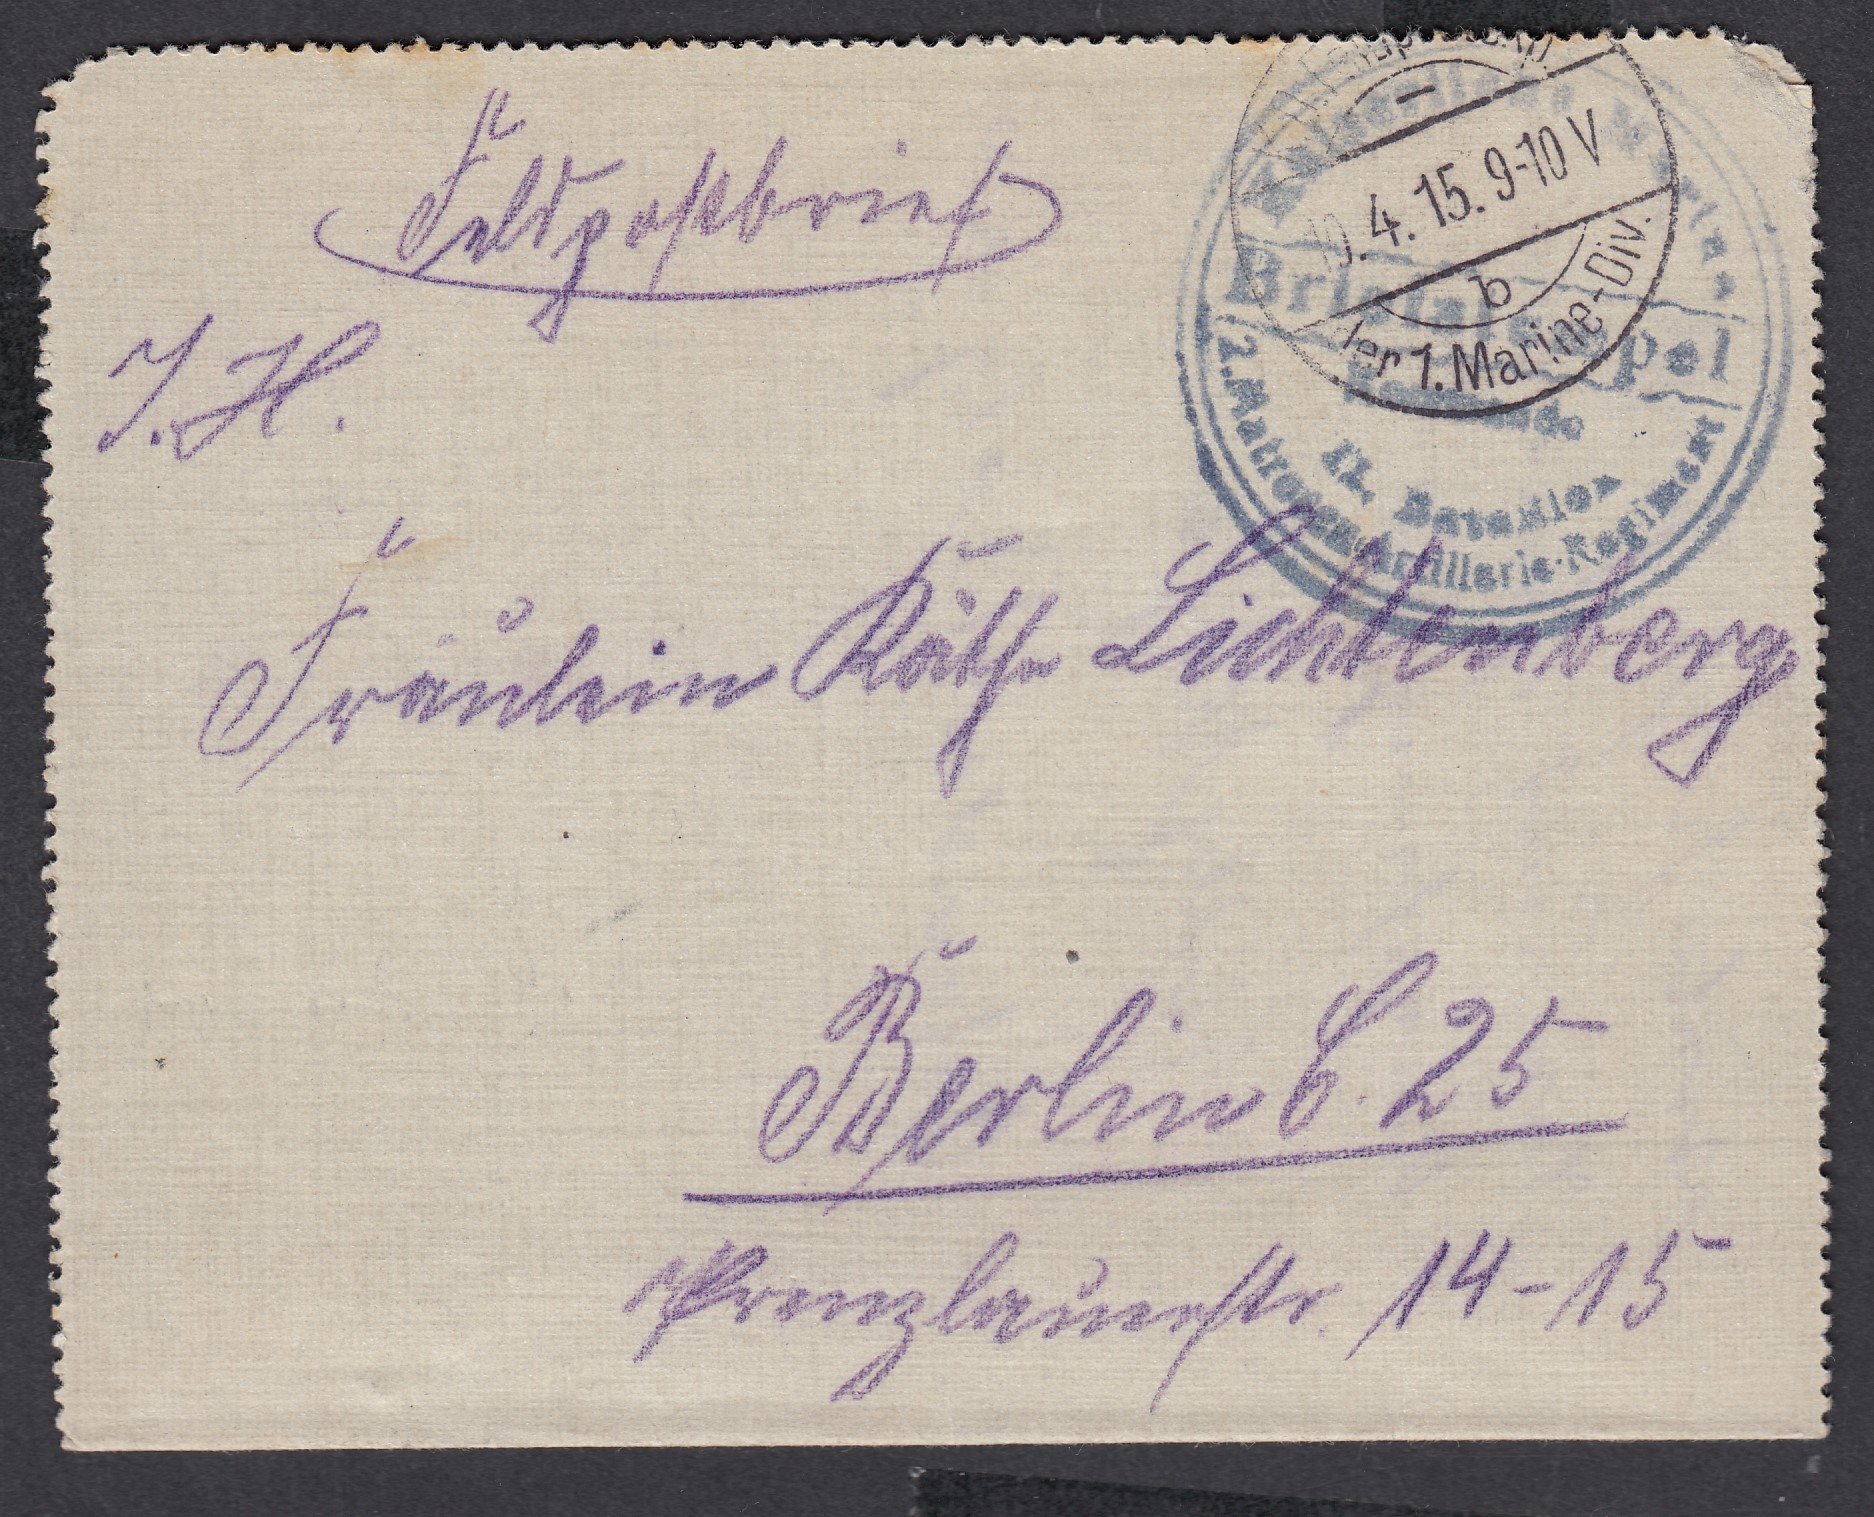 Feldpostbrief
J. H.
4. 15. 9-10 V
b
der 1. Marine-Div.
Kaiserliche Marine
Briefstempel
II. Bataillon
2. Matrosen-Artillerie-Regiment
Fräulein Käthe Lichtenberg
Berlin C. 25
Prenzlauerstr. 14-15